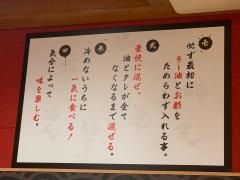 壱
必ず最初に
ラー油とお酢を
ためらわず入れる事。
弐
豪快に混ぜ、
油とタレが全て
なくなるまで混ぜる。
参
冷めないうちに
一気に食べる!
四
気分によって
味を楽しむ。